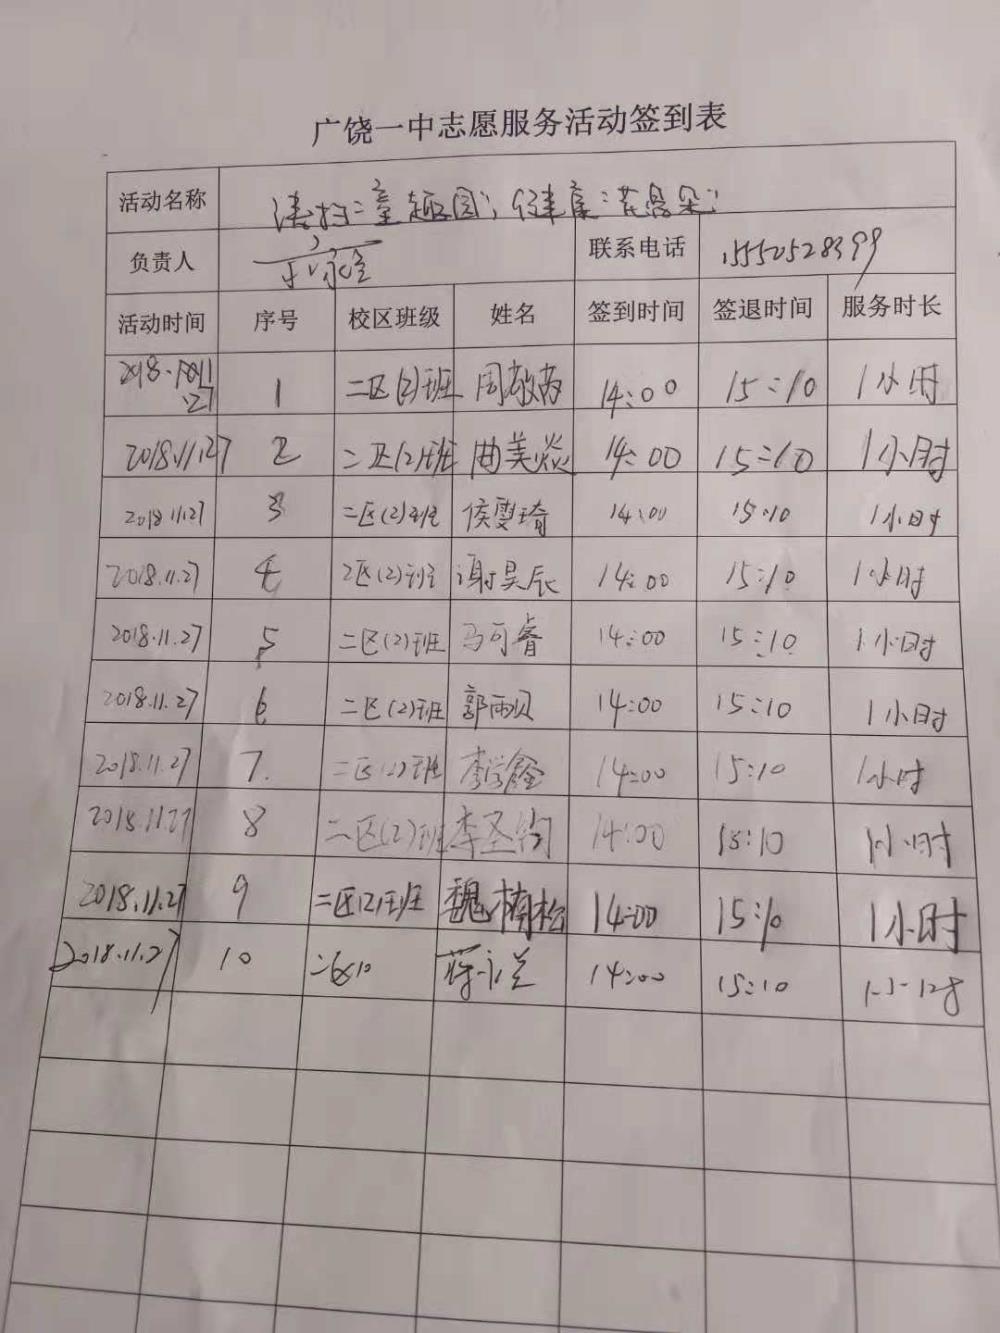 广饶一中志愿服务活动签到表
活动名称 清扫童趣园,健康
负责人 联系电话 15550528399
活动时间 序号 校区班级 姓名 签到时间 签退时间 服务时长
2018.11.27 1 二区(2)班 周敬 14:00 15:10 1小时
2018.11.27 2 二区(2)班 曲美焱 14:00 15:10 1小时
2018.11.27 3 二区(2)班 侯雯琦 14:00 15:10 1小时
2018.11.27 4 2区(2)班 谢昊辰 14:00 15:10 1小时
2018.11.27 5 二区(2)班 马可睿 14:00 15:10 1小时
2018.11.27 6 二区(2)班 郭雨贝 14:00 15:10 1小时
2018.11.27 7. 二区(2)班 李学鑫 14:00 15:10 1小时
2018.11.27 8 二区(2)班 李圣钧 14:00 15:10 1小时
2018.11.27 9 二区(2)班 魏楠松 14:00 15:10 1小时
2018.11.27 10 14:00 15:10